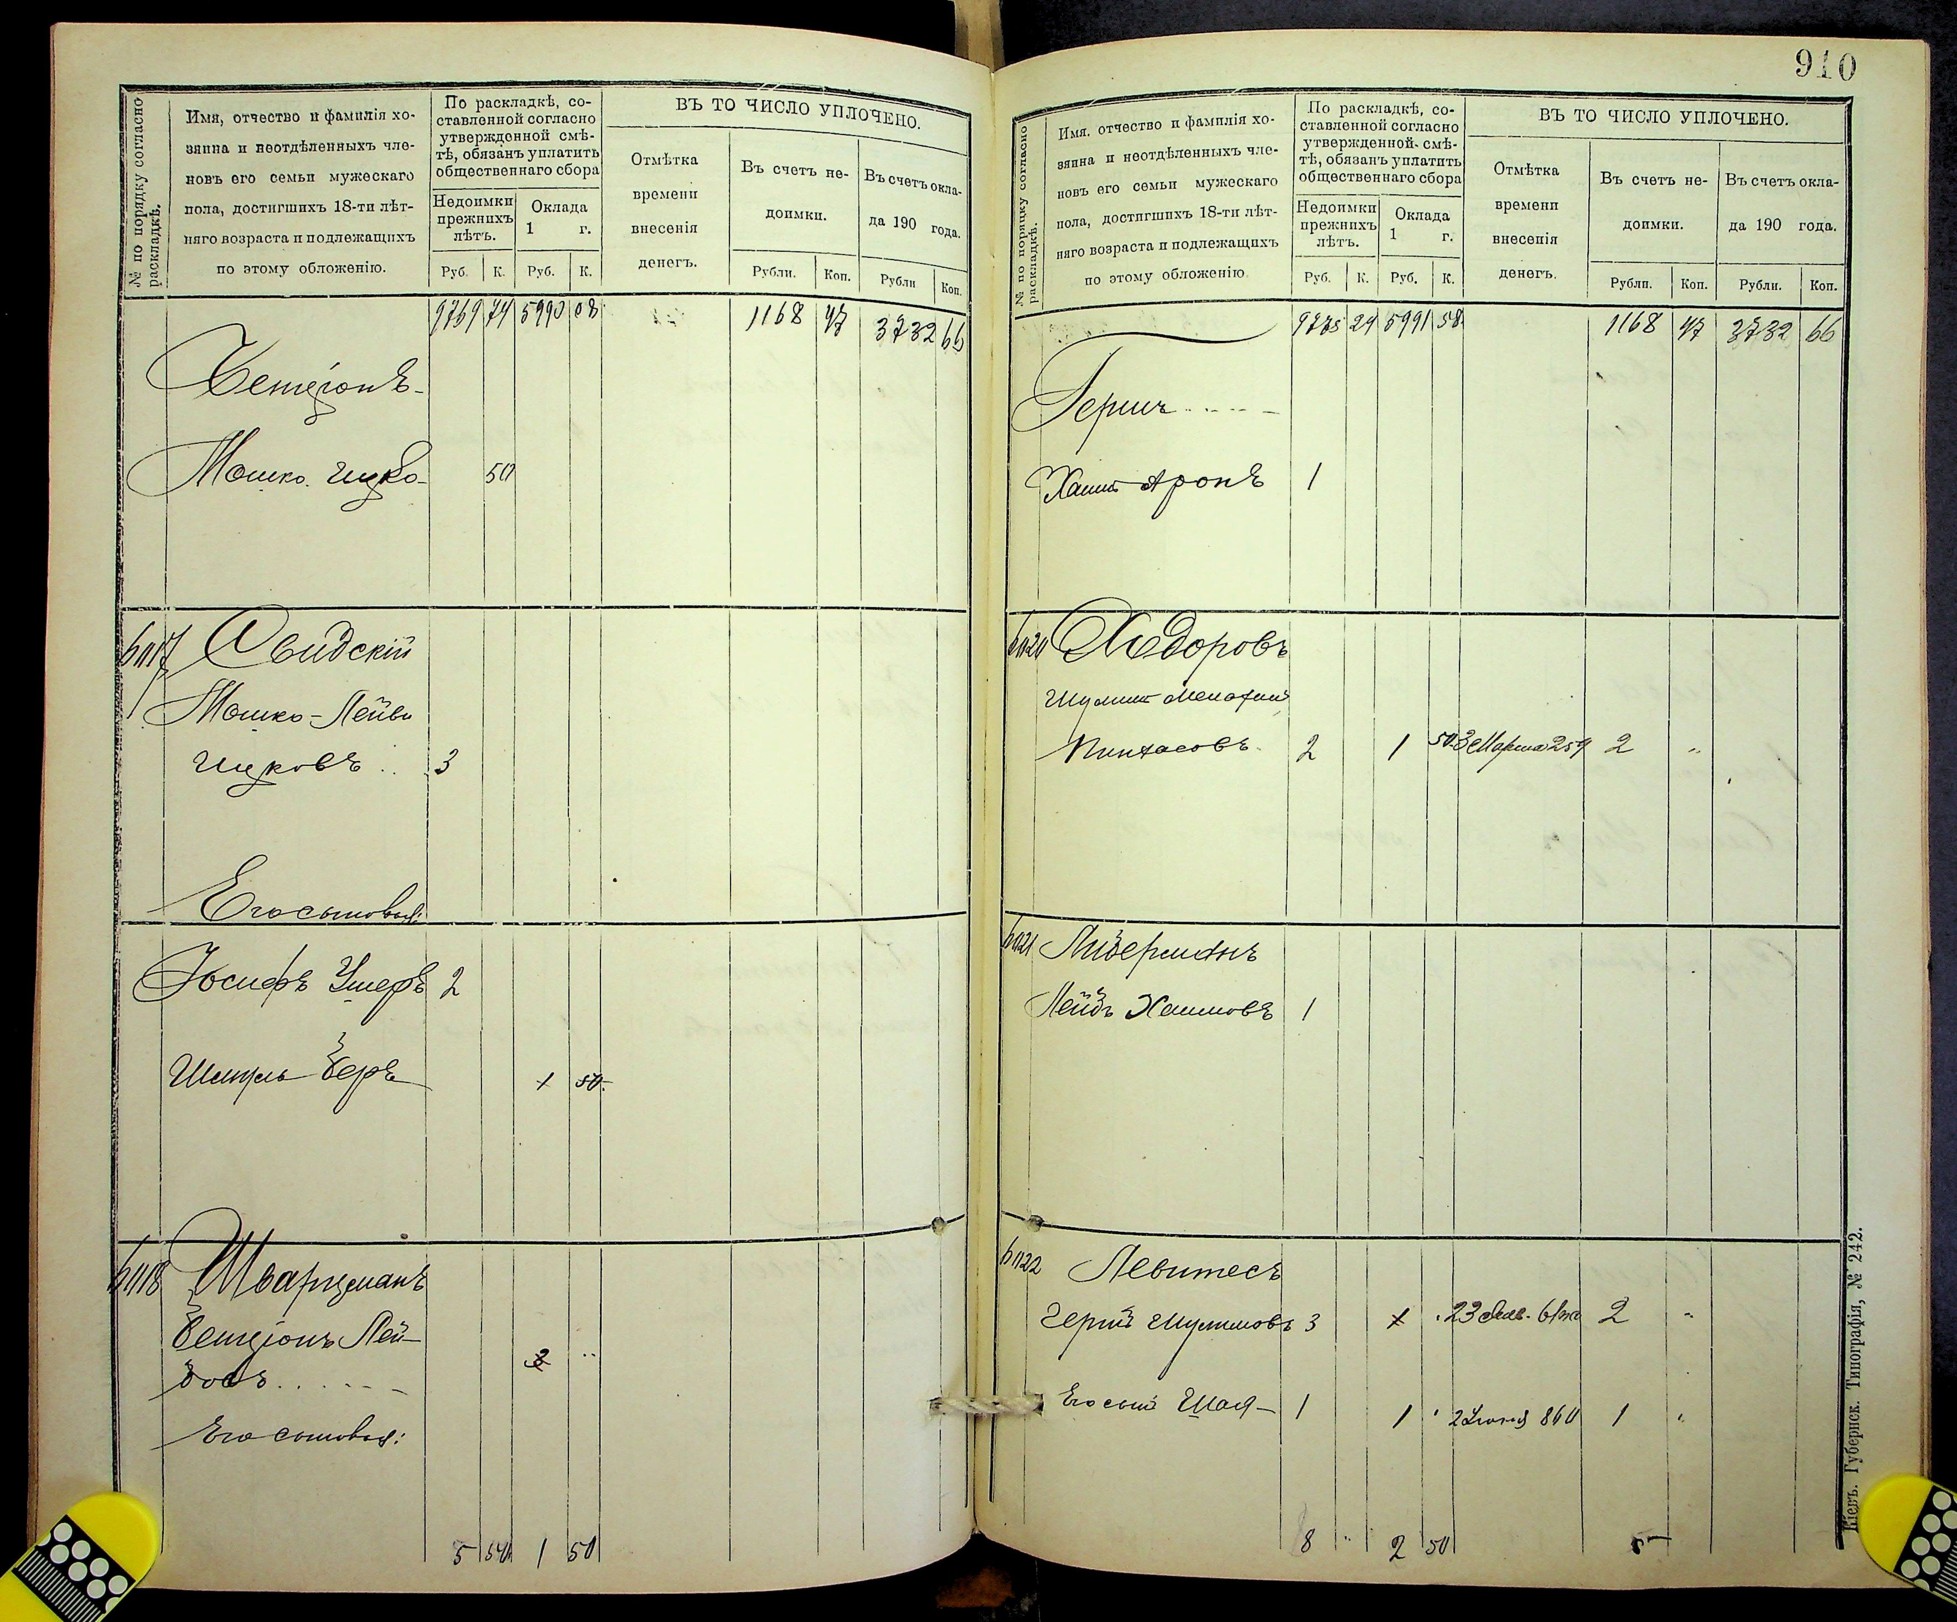 910
№ по порядку согласно раскладкѣ.
Имя, отчество и фамилія хо-
зяина и неотдѣленныхъ чле-
новъ его семьи мужескаго
пола, достигшихъ 18-ти лѣт-
няго возраста и подлежащихъ
по этому обложенію.
По раскладкѣ, со-
ставленной согласно
утвержденной смѣ-
тѣ, обязанъ уплатить
общественнаго сбора
Недоимки
прежнихъ
лѣтъ.
Оклада
1 г.
Руб. К. Руб. К.
ВЪ ТО ЧИСЛО УПЛОЧЕНО.
Отмѣтка
времени
внесенія
денегъ.
Въ счетъ не-
доимки.
Въ счетъ окла-
да 190 года.
Рубли. Коп. Рубли Коп.
9769 74 5990 08 1168 47 3732 66
Бенціонъ
Мошко Ицко 50
6117 Свидскій
Мошко-Лейба
Ицковъ .. 3
Его сыновья:
Іосифъ Ушеръ 2
Шмуль Беръ 1 50
6118 Шварцманъ
Бенціонъ Лей-
бовъ
Его сыновья:
5 50 1 50
№ по порядку согласно раскладкѣ.
Имя, отчество и фамилія хо-
зяина и неотдѣленныхъ чле-
новъ его семьи мужескаго
пола, достигшихъ 18-ти лѣт-
няго возраста и подлежащихъ
по этому обложенію.
По раскладкѣ, со-
ставленной согласно
утвержденной смѣ-
тѣ, обязанъ уплатить
общественнаго сбора
Недоимки
прежнихъ
лѣтъ.
Оклада
1 г.
Руб. К. Руб. К.
ВЪ ТО ЧИСЛО УПЛОЧЕНО.
Отмѣтка
времени
внесенія
денегъ.
Въ счетъ не-
доимки.
Въ счетъ окла-
да 190 года.
Рубли. Коп. Рубли. Коп.
9775 24 5991 58 1168 47 3732 66
Гершъ
Хаимъ Аронъ 1
6120 Ходоровъ
Шулимъ
Пинхасовъ 2 1 50 3 Марта 259 2 "
6121 Либерманъ
Лейбъ Хаимовъ 1
6122 Левитесъ
Гершъ Шулимовъ 3 23 2 "
Его сынъ Шая 1 1 860 1 "
8 " 2 50 5
Кіевъ. Губернск. Типографія, № 242.